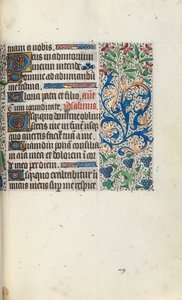 nam a nobis.
Deus in adiutorium
meum intende.
Domine ad adiuuandū
me festina.
Gloria patri et filio, ane
psalmus.
Usquequo domine obliui
sceris me in finē usque
quo auertis faciē tuā a me.
Quamdiu ponā consilia
in aīa mea et dolorem ī cor
de meo
Usquequo exaltabitur ī
micus meus sup me respice